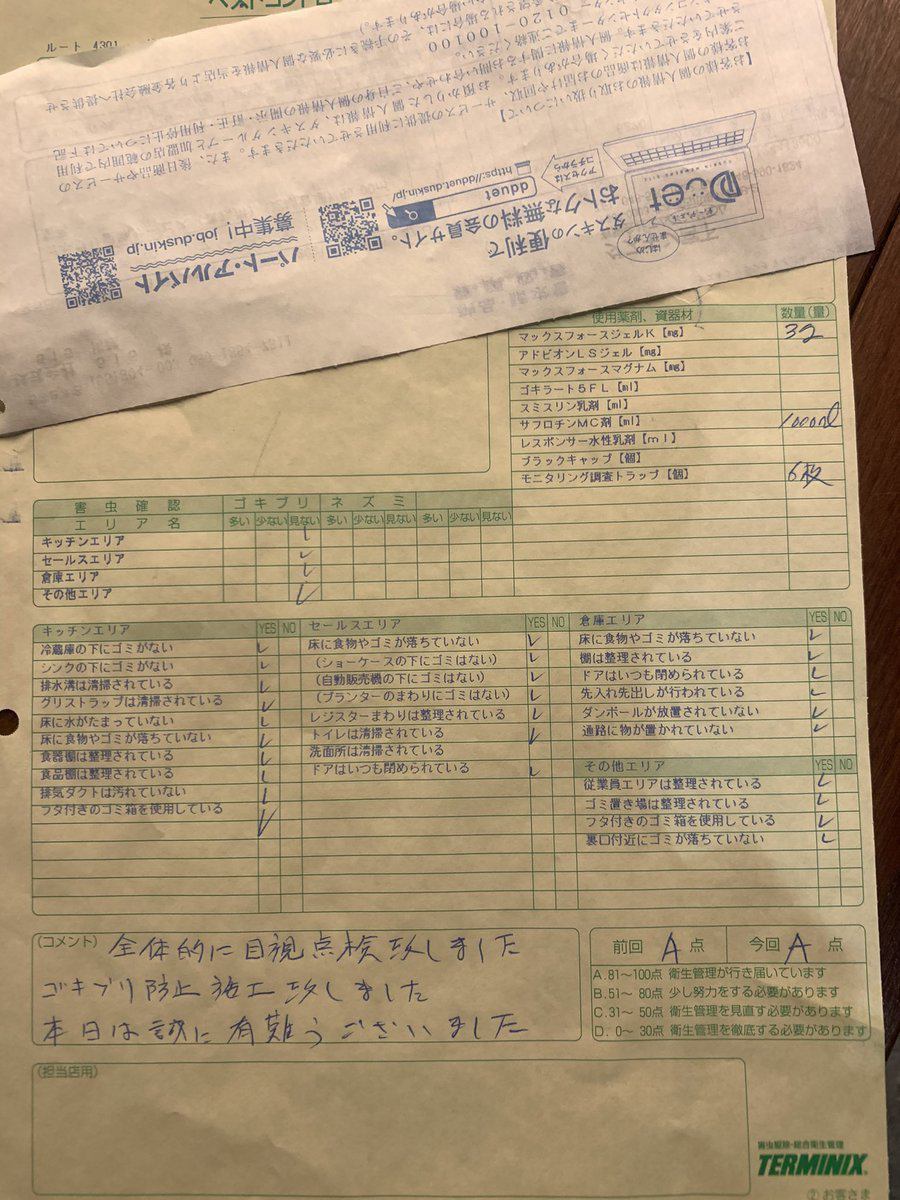 ルート 4301
【お客様の個人情報のお取り扱いについて】
https://dduet.duskin.jp/
dduet
アクセスはコチラから
ダスキンの便利で
おトクな無料の会員サイト。
Duet
はじめませんか?
パート・アルバイト
募集中! job.duskin.jp
0120-100100
使用薬剤、資器材 数量(量)
マックスフォースジェルK【mg】 32
アドビオンLSジェル【mg】
マックスフォースマグナム【mg】
ゴキラート5FL【ml】
スミスリン乳剤【ml】
サフロチンMC剤【ml】 1000ml
レスポンサー水性乳剤【ml】
ブラックキャップ【個】
モニタリング調査トラップ【個】 6枚
害虫確認 ゴキブリ ネズミ
エリア名 多い 少ない 見ない 多い 少ない 見ない 多い 少ない 見ない
キッチンエリア
セールスエリア
倉庫エリア
その他エリア
キッチンエリア YES NO
冷蔵庫の下にゴミがない
シンクの下にゴミがない
排水溝は清掃されている
グリストラップは清掃されている
床に水がたまっていない
床に食物やゴミが落ちていない
食器棚は整理されている
食品棚は整理されている
排気ダクトは汚れていない
フタ付きのゴミ箱を使用している
セールスエリア YES NO
床に食物やゴミが落ちていない
(ショーケースの下にゴミはない)
(自動販売機の下にゴミはない)
(プランターのまわりにゴミはない)
レジスターまわりは整理されている
トイレは清掃されている
洗面所は清掃されている
ドアはいつも閉められている
倉庫エリア YES NO
床に食物やゴミが落ちていない
棚は整理されている
ドアはいつも閉められている
先入れ先出しが行われている
ダンボールが放置されていない
通路に物が置かれていない
その他エリア YES NO
従業員エリアは整理されている
ゴミ置き場は整理されている
フタ付きのゴミ箱を使用している
裏口付近にゴミが落ちていない
(コメント) 全体的に目視点検致しました
ゴキブリ防止施工致しました
本日は誠に有難うございました
前回 A 点 今回 A 点
A.81〜100点 衛生管理が行き届いています
B.51〜 80点 少し努力をする必要があります
C.31〜 50点 衛生管理を見直す必要があります
D. 0〜 30点 衛生管理を徹底する必要があります
(担当店用)
害虫駆除・総合衛生管理
TERMINIX
② お客さま